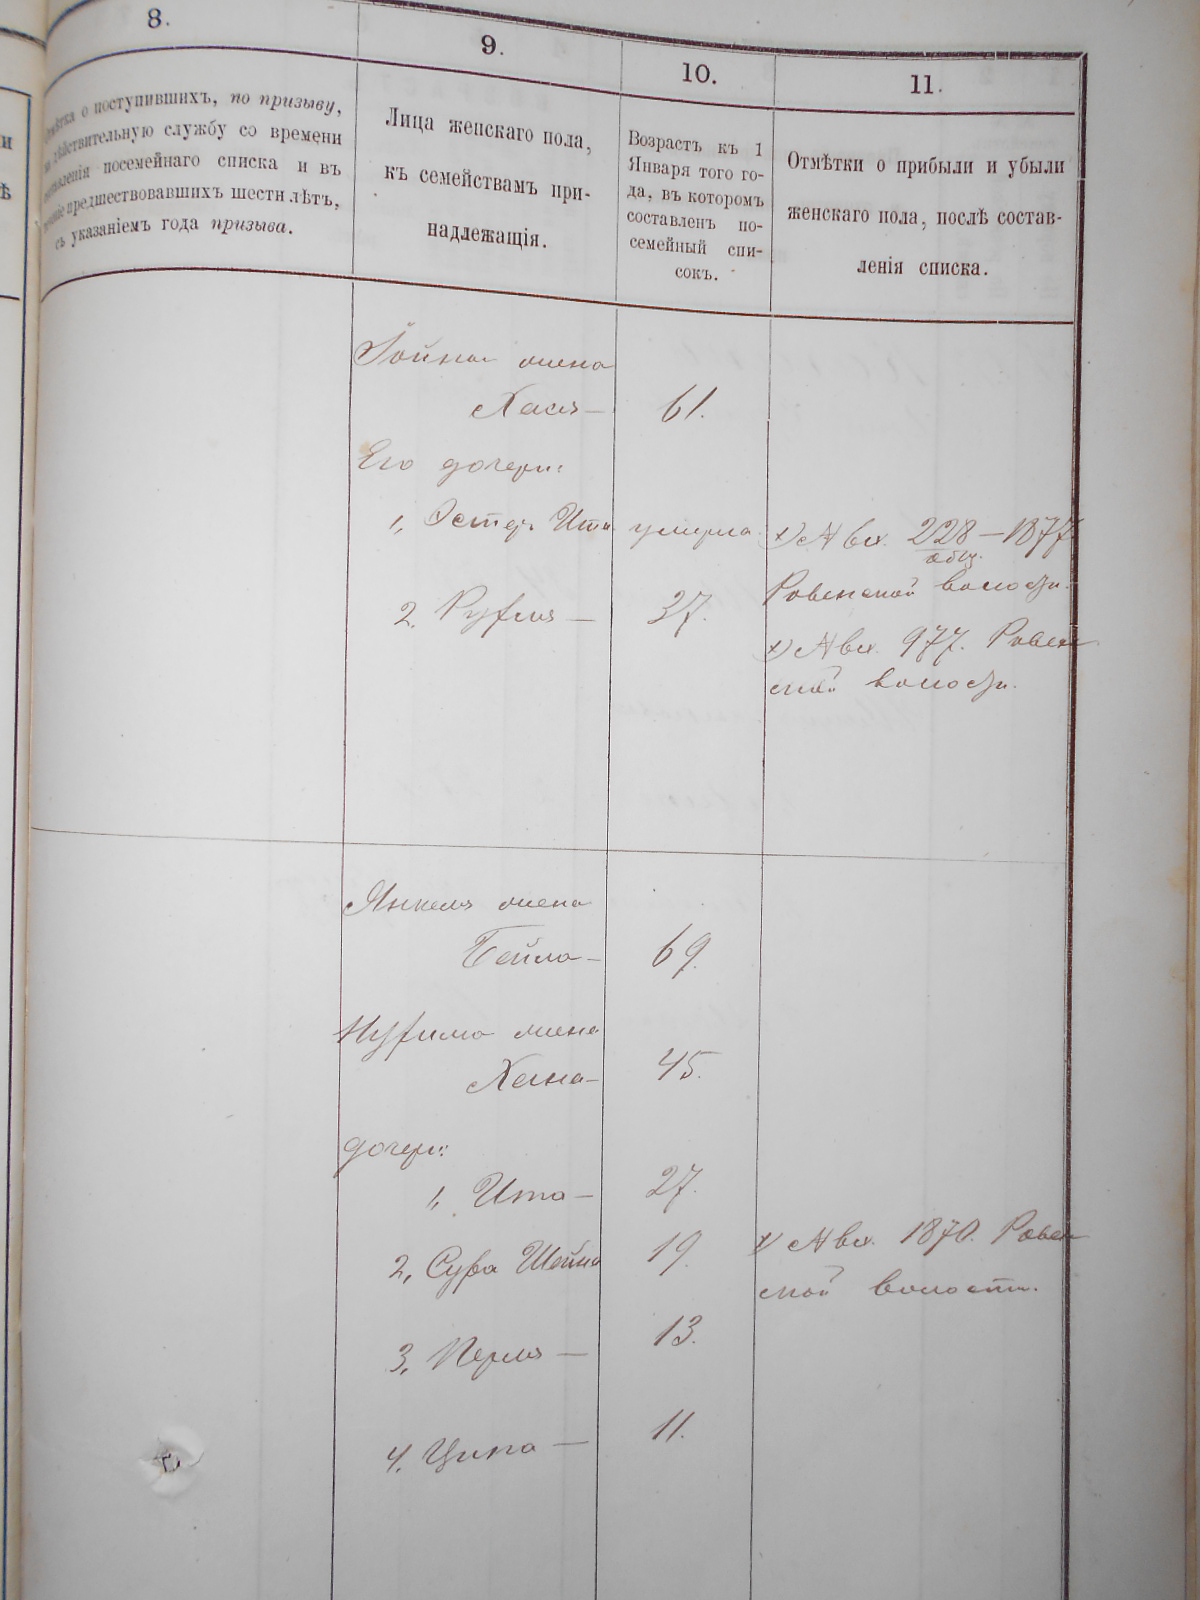 8.
9.
10.
11.
о поступившихъ, по призыву,
дѣйствительную службу со времени
посемейнаго списка и въ
предшествовавшихъ шести лѣтъ,
съ указаніемъ года призыва.
Лица женскаго пола,
къ семействамъ при-
надлежащія.
Возрастъ къ 1
Января того го-
да, въ которомъ
составленъ по-
семейный спи-
сокъ.
Отмѣтки о прибыли и убыли
женскаго пола, послѣ состав-
ленія списка.
жена
Хася— 61.
Его дочери:
1, Эстер Ита умерла х) № вх. 228 — 1877
общ.
Ровенской волости.
2. Руфля — 37.
х) № вх. 977. Ровен
ской волости.
Янкеля жена
Бейла— 69.
жена
Хана— 45.
дочери:
1, Ита— 27.
2, Сура Шейна 19. х) № вх. 1870. Ровен
ской волости.
3, Перля — 13.
4. Ципа — 11.